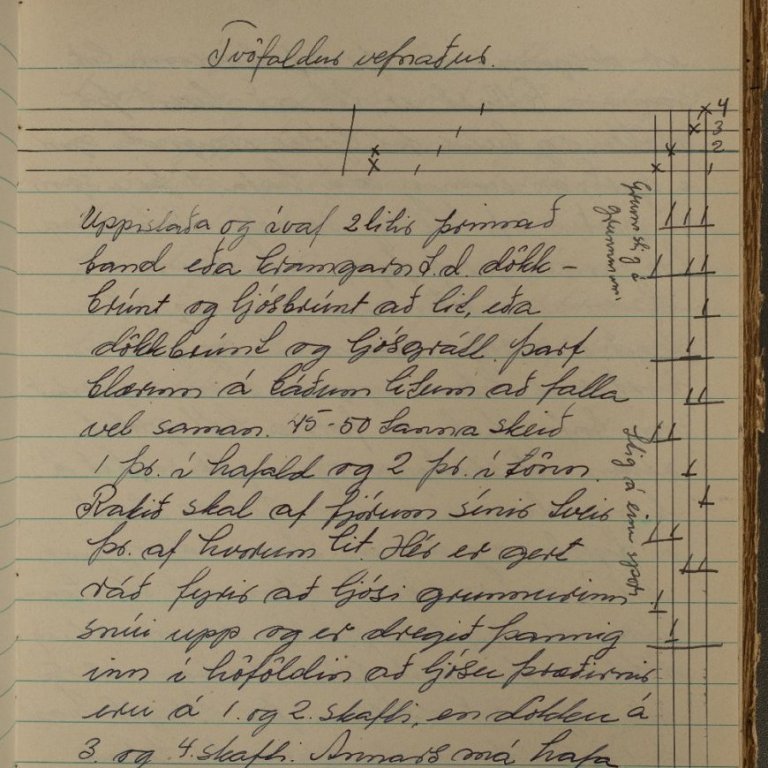 Tvöfaldur vefnaður.
4
3
2
1
Uppistaða og ívaf 2 litir þrinnað
band eða kramgarn t.d. dökk-
brúnt og ljósbrúnt að lit, eða
dökkbrúnt og ljósgrátt. Þarf
blærinn á báðum litum að falla
vel saman. 45-50 tanna skeið
1 þr. í hafald og 2 þr. í tönn.
Rakið skal af fjórum sínir tveir
þr. af hvorum lit. Hér er gert
ráð fyrir að ljósi grunnurinn
snúi upp og er dregið þannig
inn í höföldin að ljósu þræðirnir
eru á 1. og 2. skafti, en dökku á
3. og 4. skafti. Annars má hafa
Grunn stig á
grunninum
Stig á einu